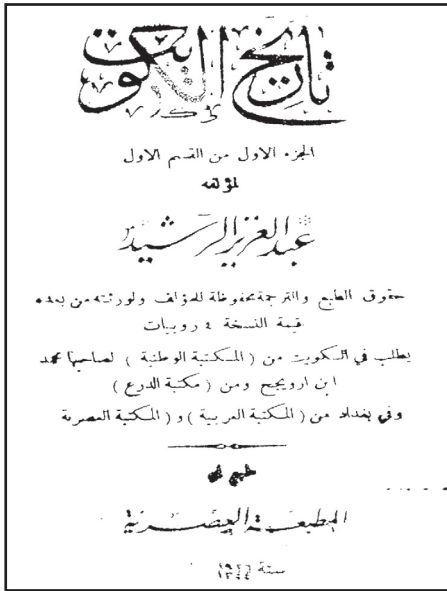 تاريخ الكويت
الجزء الاول من القسم الاول
لمؤلفه
عبد العزيز الرشيد
حقوق الطبع والترجمة محفوظة للمؤلف ولورثته من بعده
قيمة النسخة ٤ روبيات
يطلب في الكويت من ( المكتبة الوطنية ) لصاحبها محمد
ابن ارويجح ومن ( مكتبة الدرع )
وفي بغداد من ( المكتبة العربية ) و ( المكتبة العصرية
المطبعة العصرية
سنة ١٣٤٤